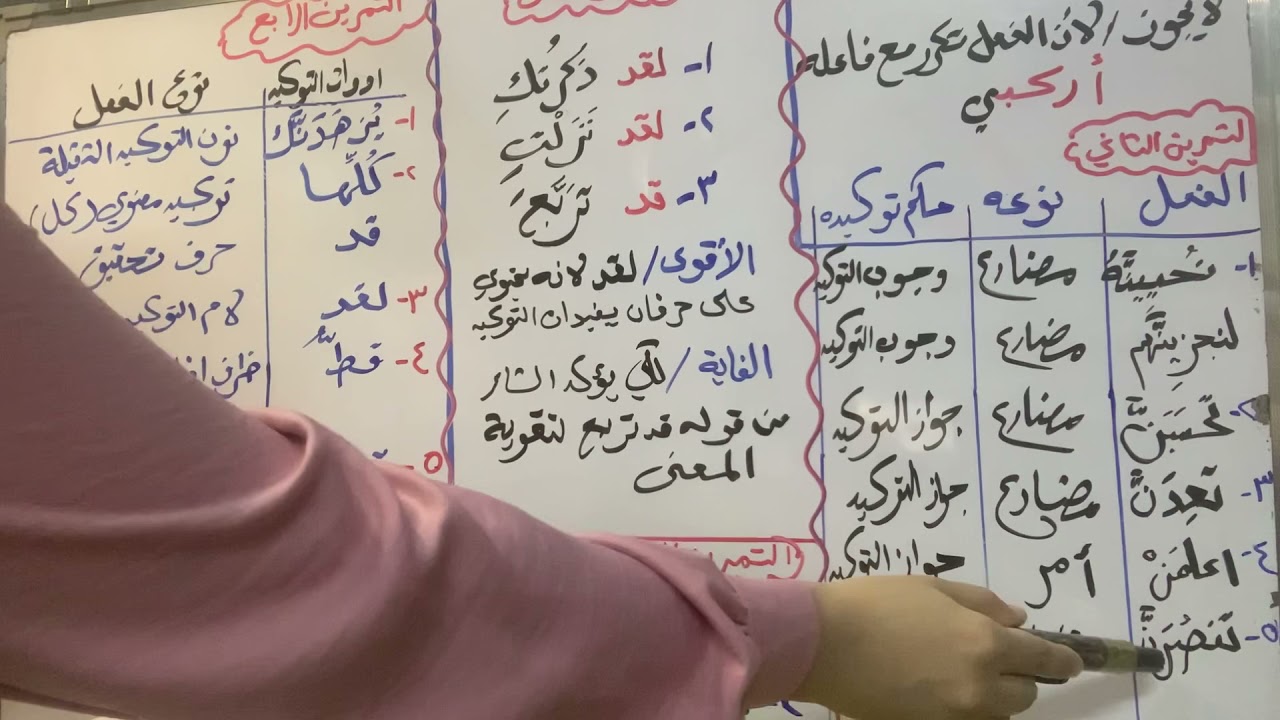 لا يجوز / لان الفعل تكرر مع فاعله
أركبي
التمرين الثاني
الفعل نوعه حكم توكيده
١- نُحيينَّهُ مضارع وجوب التوكيد
لنجزينَّهم مضارع وجوب التوكيد
٢- تحسَبَنَّ مضارع جواز التوكيد
٣- تعِدَنَّ مضارع جواز التوكيد
٤- اعلمَنْ أمر جواز التوكيد
٥- تنصُرَنَّ
١- لقد ذكرتُكِ
٢- لقد نَزَلْتِ
٣- قد تَرَبَّعَ
الأقوى / لقد لانه يحوي
على حرفان يفيدان التوكيد
الغاية / لكي يؤكد الشاعر
من قوله قد تربع لتقوية
المعنى
التمرين
التمرين الرابع
ادوات التوكيد نوع الفعل
١- يُزهَدَنَّكَ نون التوكيد الثقيلة
٢- كُلِّها توكيد معنوي (كل)
قد حرف تحقيق
٣- لقد لام التوكيد
٤- قطُّ ظرف
٥-